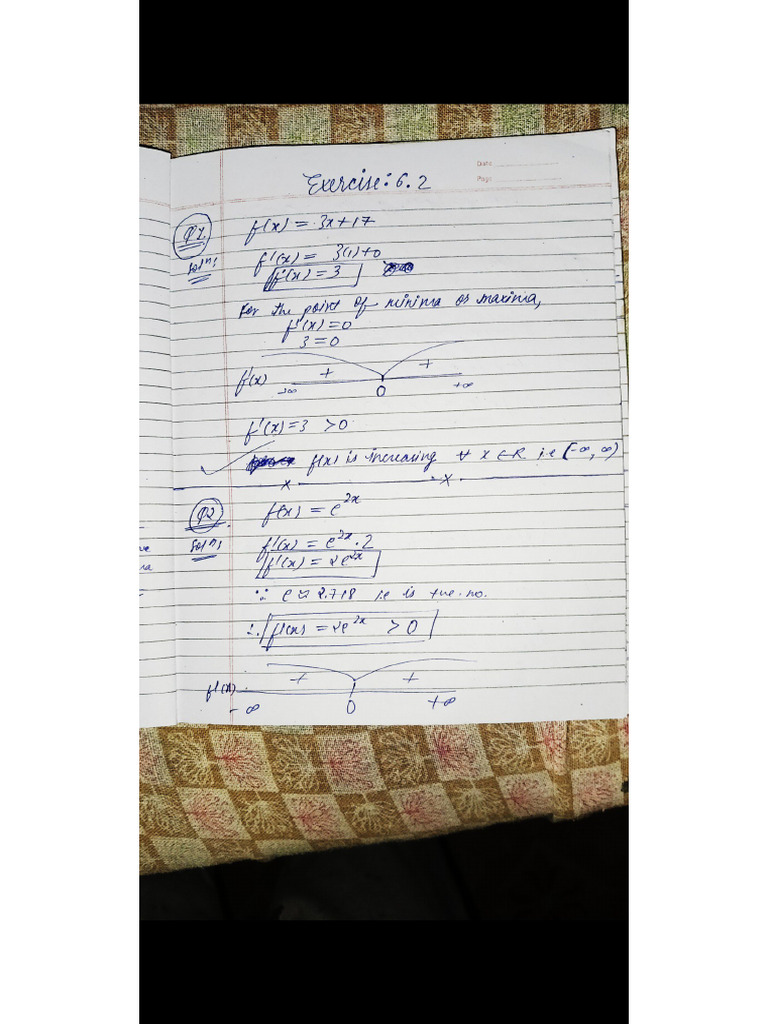 Date
Page
Exercise: 6.2
Q1.
Solⁿ:
f(x) = 3x+17
f'(x) = 3(1)+0
f'(x) = 3
For the point of minima or maxima,
f'(x) = 0
3 = 0
+ +
f'(x) -∞ 0 +∞
f'(x) = 3 > 0
f(x) is increasing ∀ x ∈ R i.e (-∞, ∞)
x x
Q2.
Solⁿ:
f(x) = e^2x
f'(x) = e^2x . 2
f'(x) = 2e^2x
∵ e ≈ 2.718 i.e is +ve no.
∴ f'(x) = 2e^2x > 0
+ +
f'(x)
-∞ 0 +∞